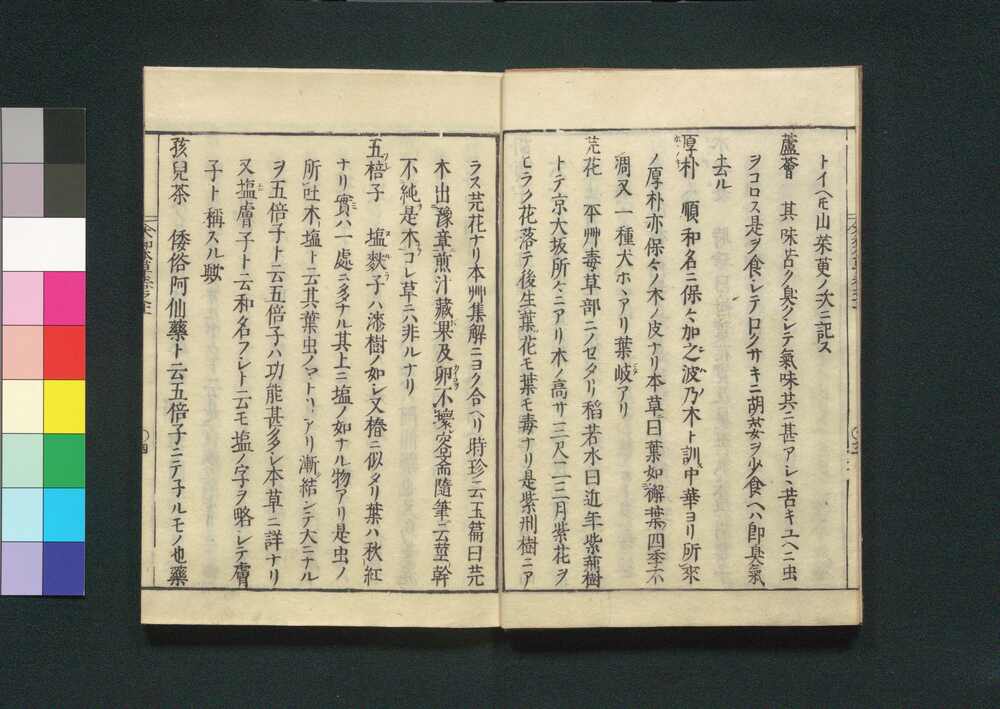 トイヘ𪜈山茱萸ノ次ニ記ス
蘆薈 其味苦ク臭クシテ氣味共ニ甚アシヽ苦キユヘニ虫
ヲコロス是ヲ食シテ口クサキニ胡荽ヲ少食ヘハ即臭氣
去ル
厚朴 順和名ニ保々加之波乃木ト訓中華ヨリ所來
ノ厚朴亦保々ノ木ノ皮ナリ本草曰葉如槲葉四季不
凋又一種犬ホヽアリ葉岐アリ
芫花 本艸毒草部ニノセタリ稻若水曰近年紫荊樹
トテ京大坂所々ニアリ木ノ高サ三尺二三月紫花ヲ
ヒラク花落テ後生葉花モ葉モ毒ナリ是紫荊樹ニア
ラス芫花ナリ本艸集解ニヨク合ヘリ時珍云玉篇曰芫
木出豫章煎汁藏果及卵不壞容斎隨筆云莖幹
不純是木コレ草ニハ非ルナリ
五棓子 塩麩子ハ漆樹ノ如シ又椿ニ似タリ葉ハ秋紅
ナリ實ハ一處ニ多ナル其上ニ塩ノ如ナル物アリ是虫ノ
所吐木塩ト云其葉虫ノヤトリアリ漸結シテ大ニナル
ヲ五倍子ト云五倍子ハ功能甚多シ本草ニ詳ナリ
又塩膚子ト云和名フシト云モ塩ノ字ヲ略シテ膚
子ト稱スル歟
孩兒茶 倭俗阿仙藥ト云五倍子ニテ子ルモノ也藥